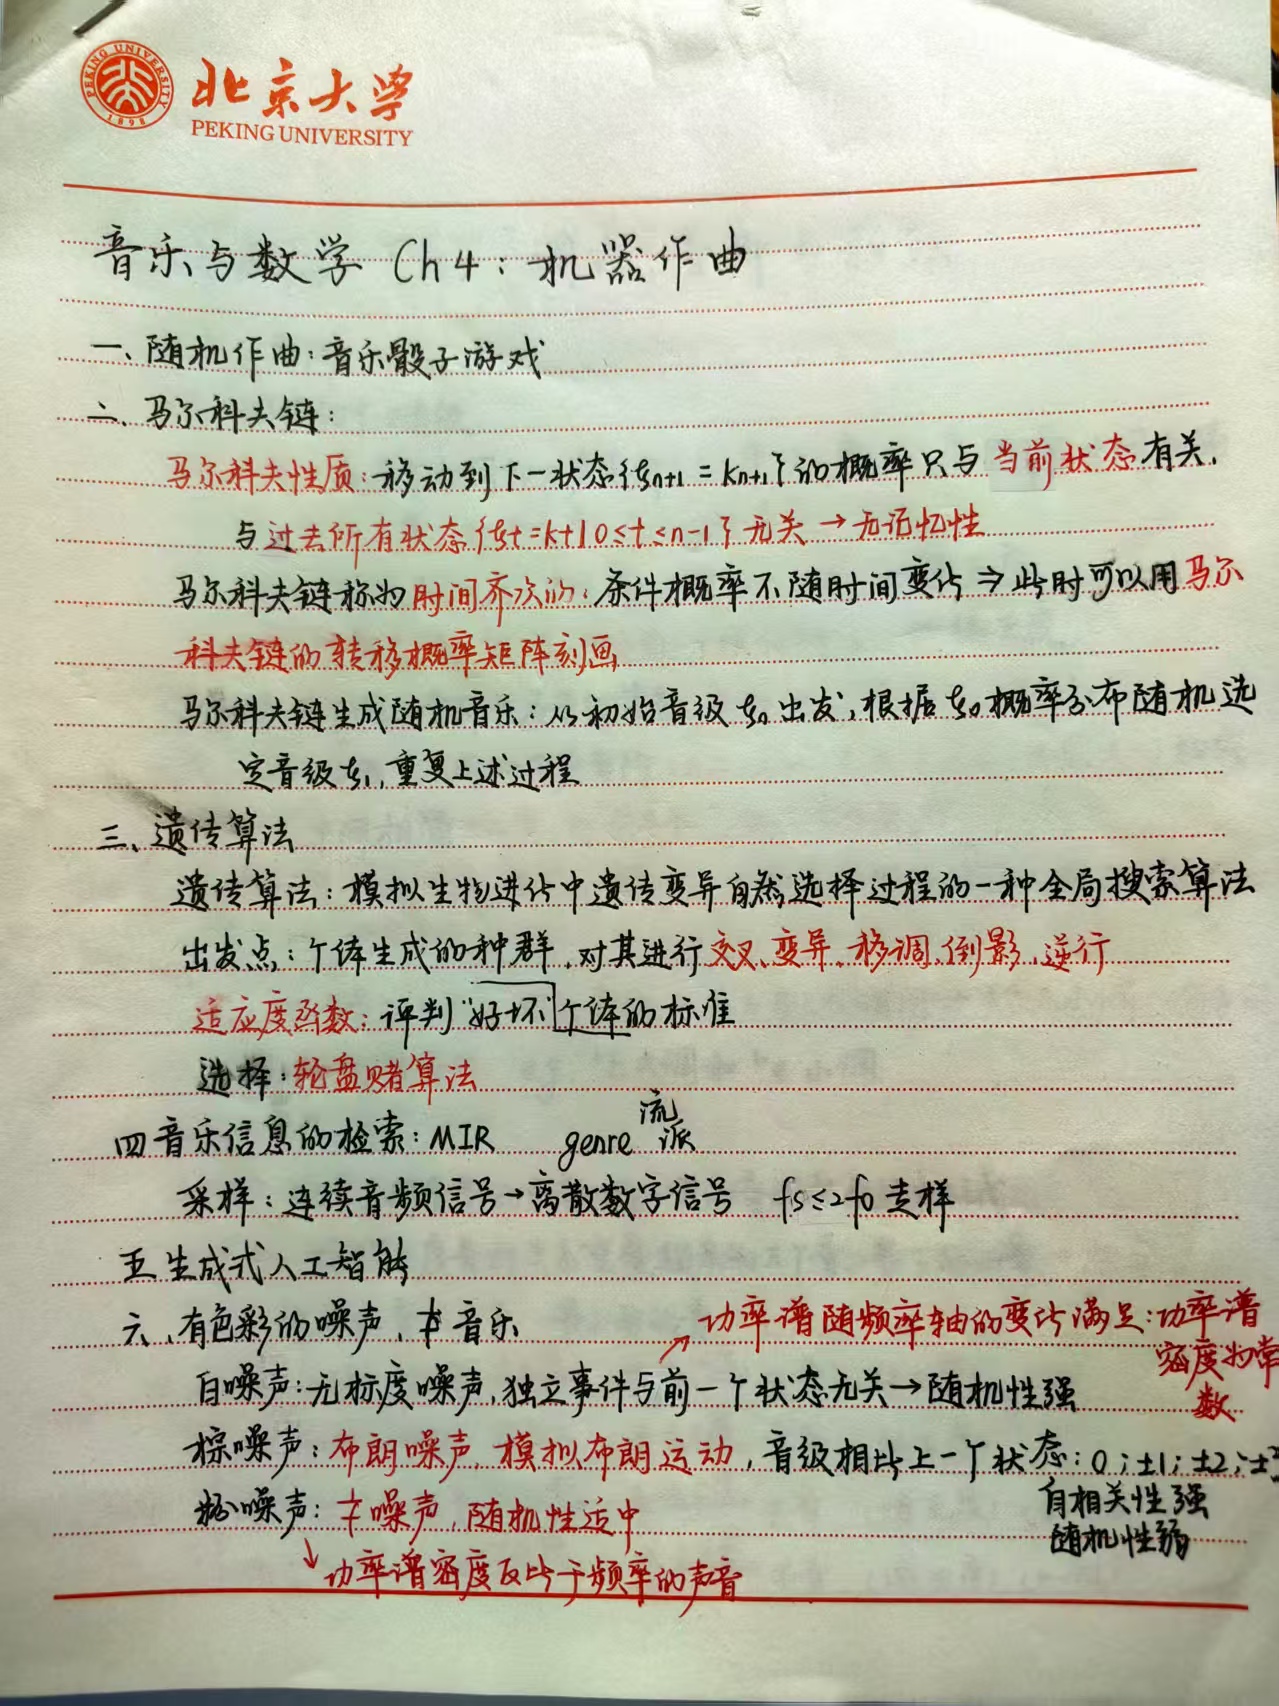 PEKING UNIVERSITY
1898
北京大学
PEKING UNIVERSITY
音乐与数学 Ch4：机器作曲
一、随机作曲：音乐骰子游戏
二、马尔科夫链：
马尔科夫性质：移动到下一状态{ξn+1 = kn+1}的概率只与当前状态有关，
与过去所有状态{ξt=kt|0≤t≤n-1}无关→无记忆性
马尔科夫链称为时间齐次的：条件概率不随时间变化⇒此时可以用马尔
科夫链的转移概率矩阵刻画
马尔科夫链生成随机音乐：从初始音级ξ0出发，根据ξ0概率分布随机选
定音级ξ1，重复上述过程
三、遗传算法
遗传算法：模拟生物进化中遗传变异自然选择过程的一种全局搜索算法
出发点：个体生成的种群，对其进行交叉、变异、移调、倒影、逆行
适应度函数：评判“好坏”个体的标准
选择：轮盘赌算法
四 音乐信息的检索：MIR genre 流派
采样：连续音频信号→离散数字信号 fs≤2f0 走样
五 生成式人工智能
六、有色彩的噪声，≠音乐
功率谱随频率轴的变化满足：功率谱
密度为常
数
白噪声：无标度噪声，独立事件与前一个状态无关→随机性强
棕噪声：布朗噪声，模拟布朗运动，音级相比上一个状态：0；±1；±2；±3
自相关性强
随机性弱
粉噪声：噪声，随机性适中
功率谱密度反比于频率的声音